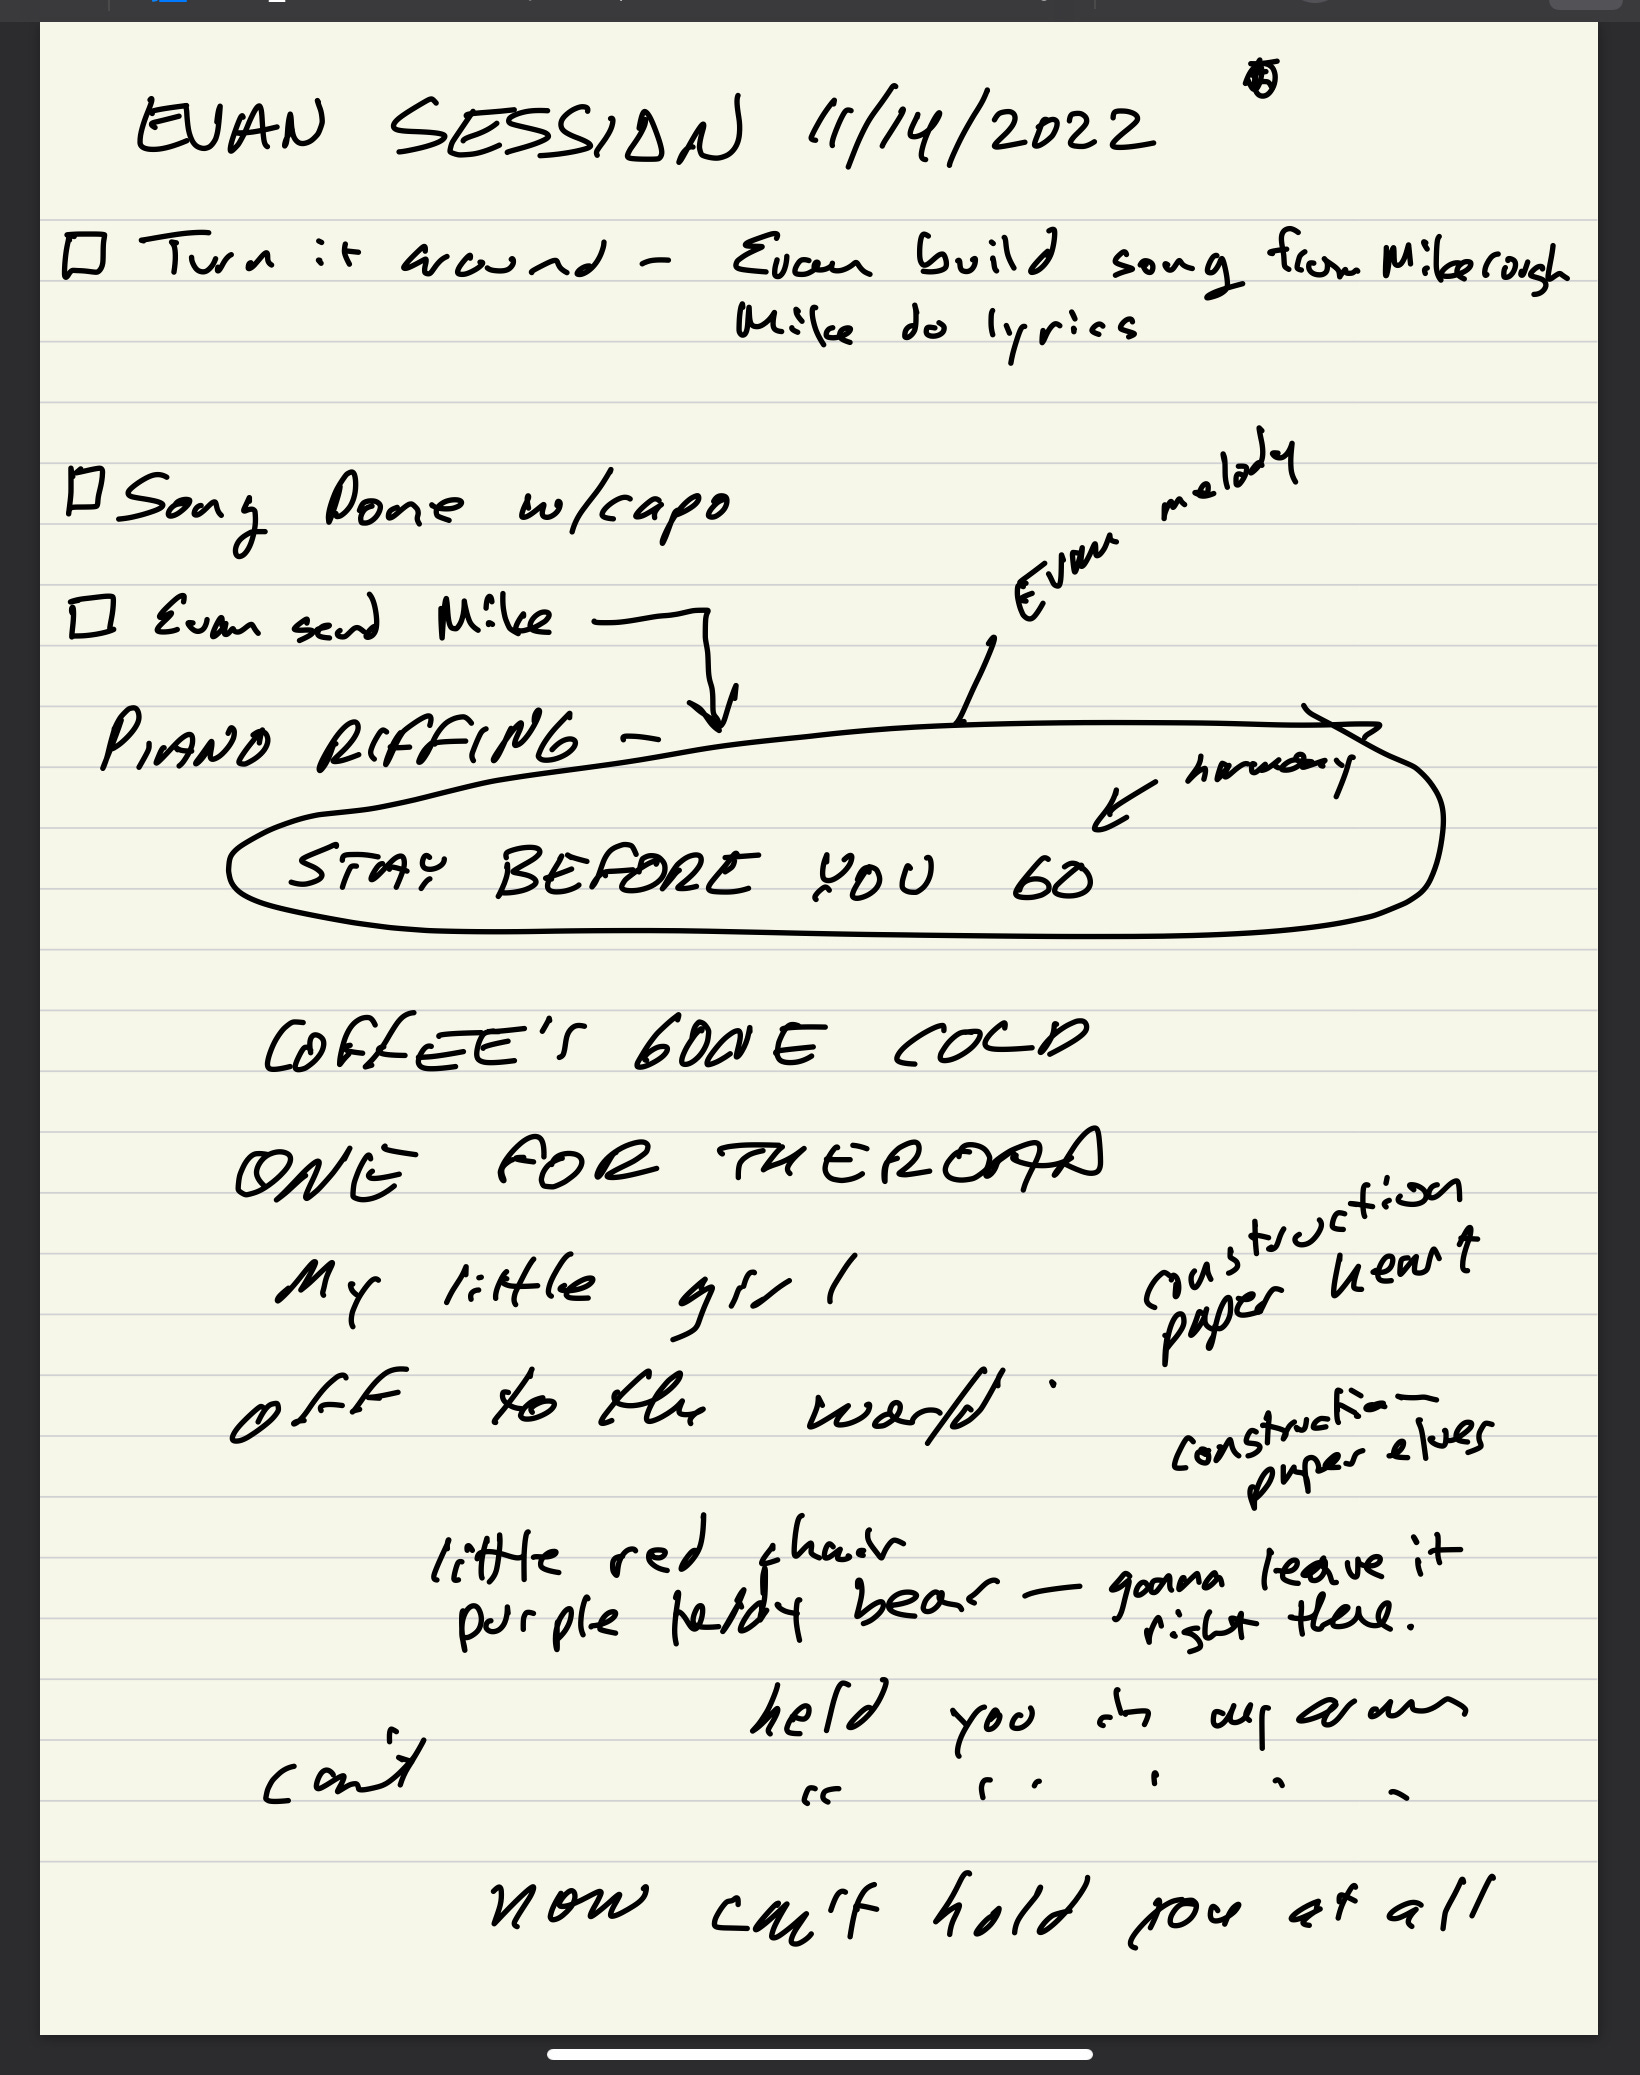 EVAN SESSION 11/14/2022
Turn it around - Evan build song from Mike rough
Mike do lyrics
Song Done w/capo
Evan melody
Evan send Mike
PIANO RIFFING -
harmony
STAY BEFORE YOU GO
COFFEE'S GONE COLD
ONE FOR THE ROAD
My little girl
off to the world
construction
paper heart
construction
paper elves
little red chair
purple teddy bear - gonna leave it
right there.
held you in my arms
can't " " " " "
now can't hold you at all